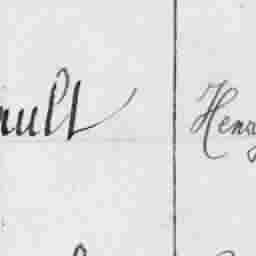 ault Henry